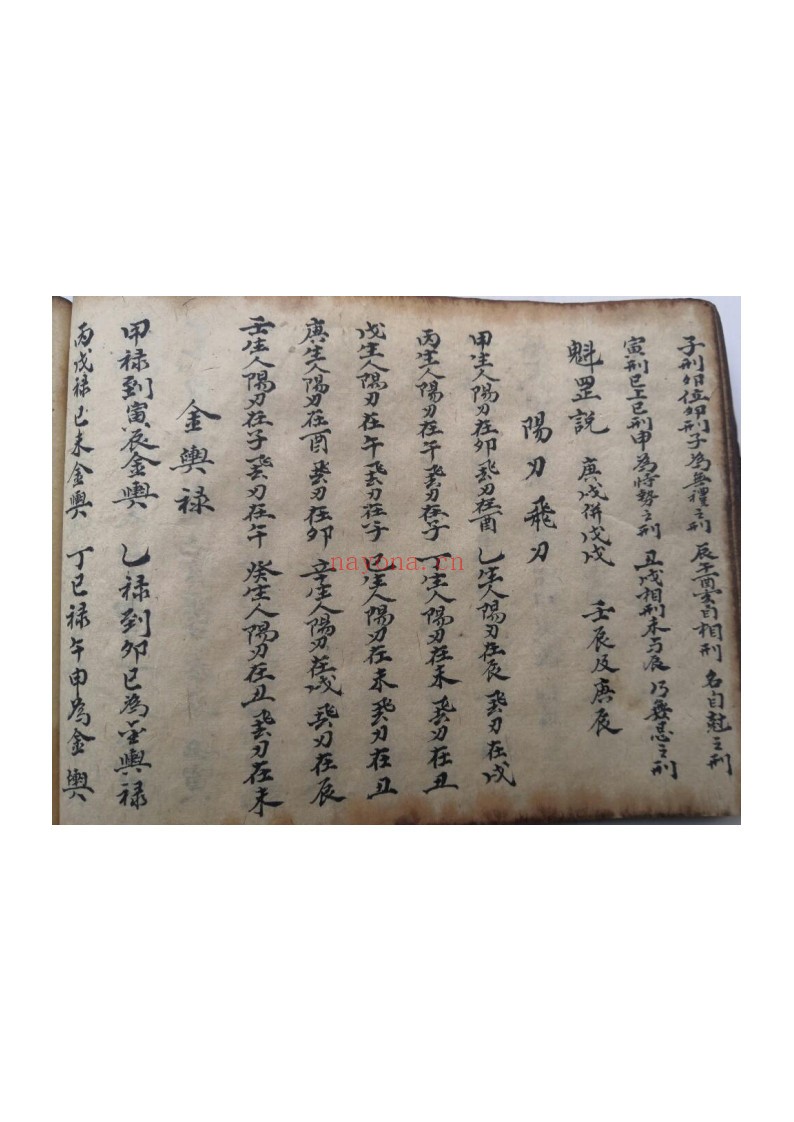 子刑卯位卯刑子為無禮之刑 辰午酉亥自相刑 名自刑之刑
寅刑巳上巳刑申為恃勢之刑 丑戌相刑未与辰 乃無忌之刑
魁罡説 庚戌併戊戌 壬辰及庚辰
陽刃飛刃
甲生人陽刃在卯飛刃在酉 乙生人陽刃在辰飛刃在戌
丙生人陽刃在午飛刃在子 丁生人陽刃在未飛刃在丑
戊生人陽刃在午飛刃在子 己生人陽刃在未飛刃在丑
庚生人陽刃在酉飛刃在卯 辛生人陽刃在戌飛刃在辰
壬生人陽刃在子飛刃在午 癸生人陽刃在丑飛刃在未
金輿禄
甲禄到寅辰金輿 乙禄到卯巳為金輿禄
丙戊禄巳未金輿 丁巳禄午申為金輿
nayona.cn